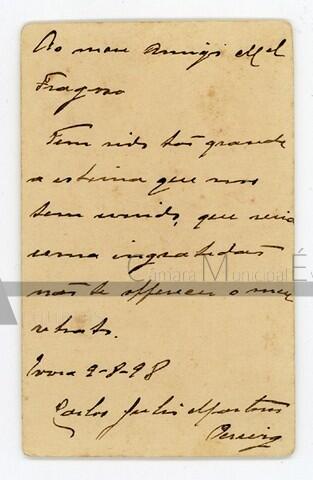 Ao meu Amigo Mel
Fragoso
Tem sido tão grande
a estima que nos
tem unido, que seria
uma ingratidão
não te offerecer o meu
retrato.
Evora 9-8-98
Carlos Julio Martins
Pereira
Câmara Municipal Év